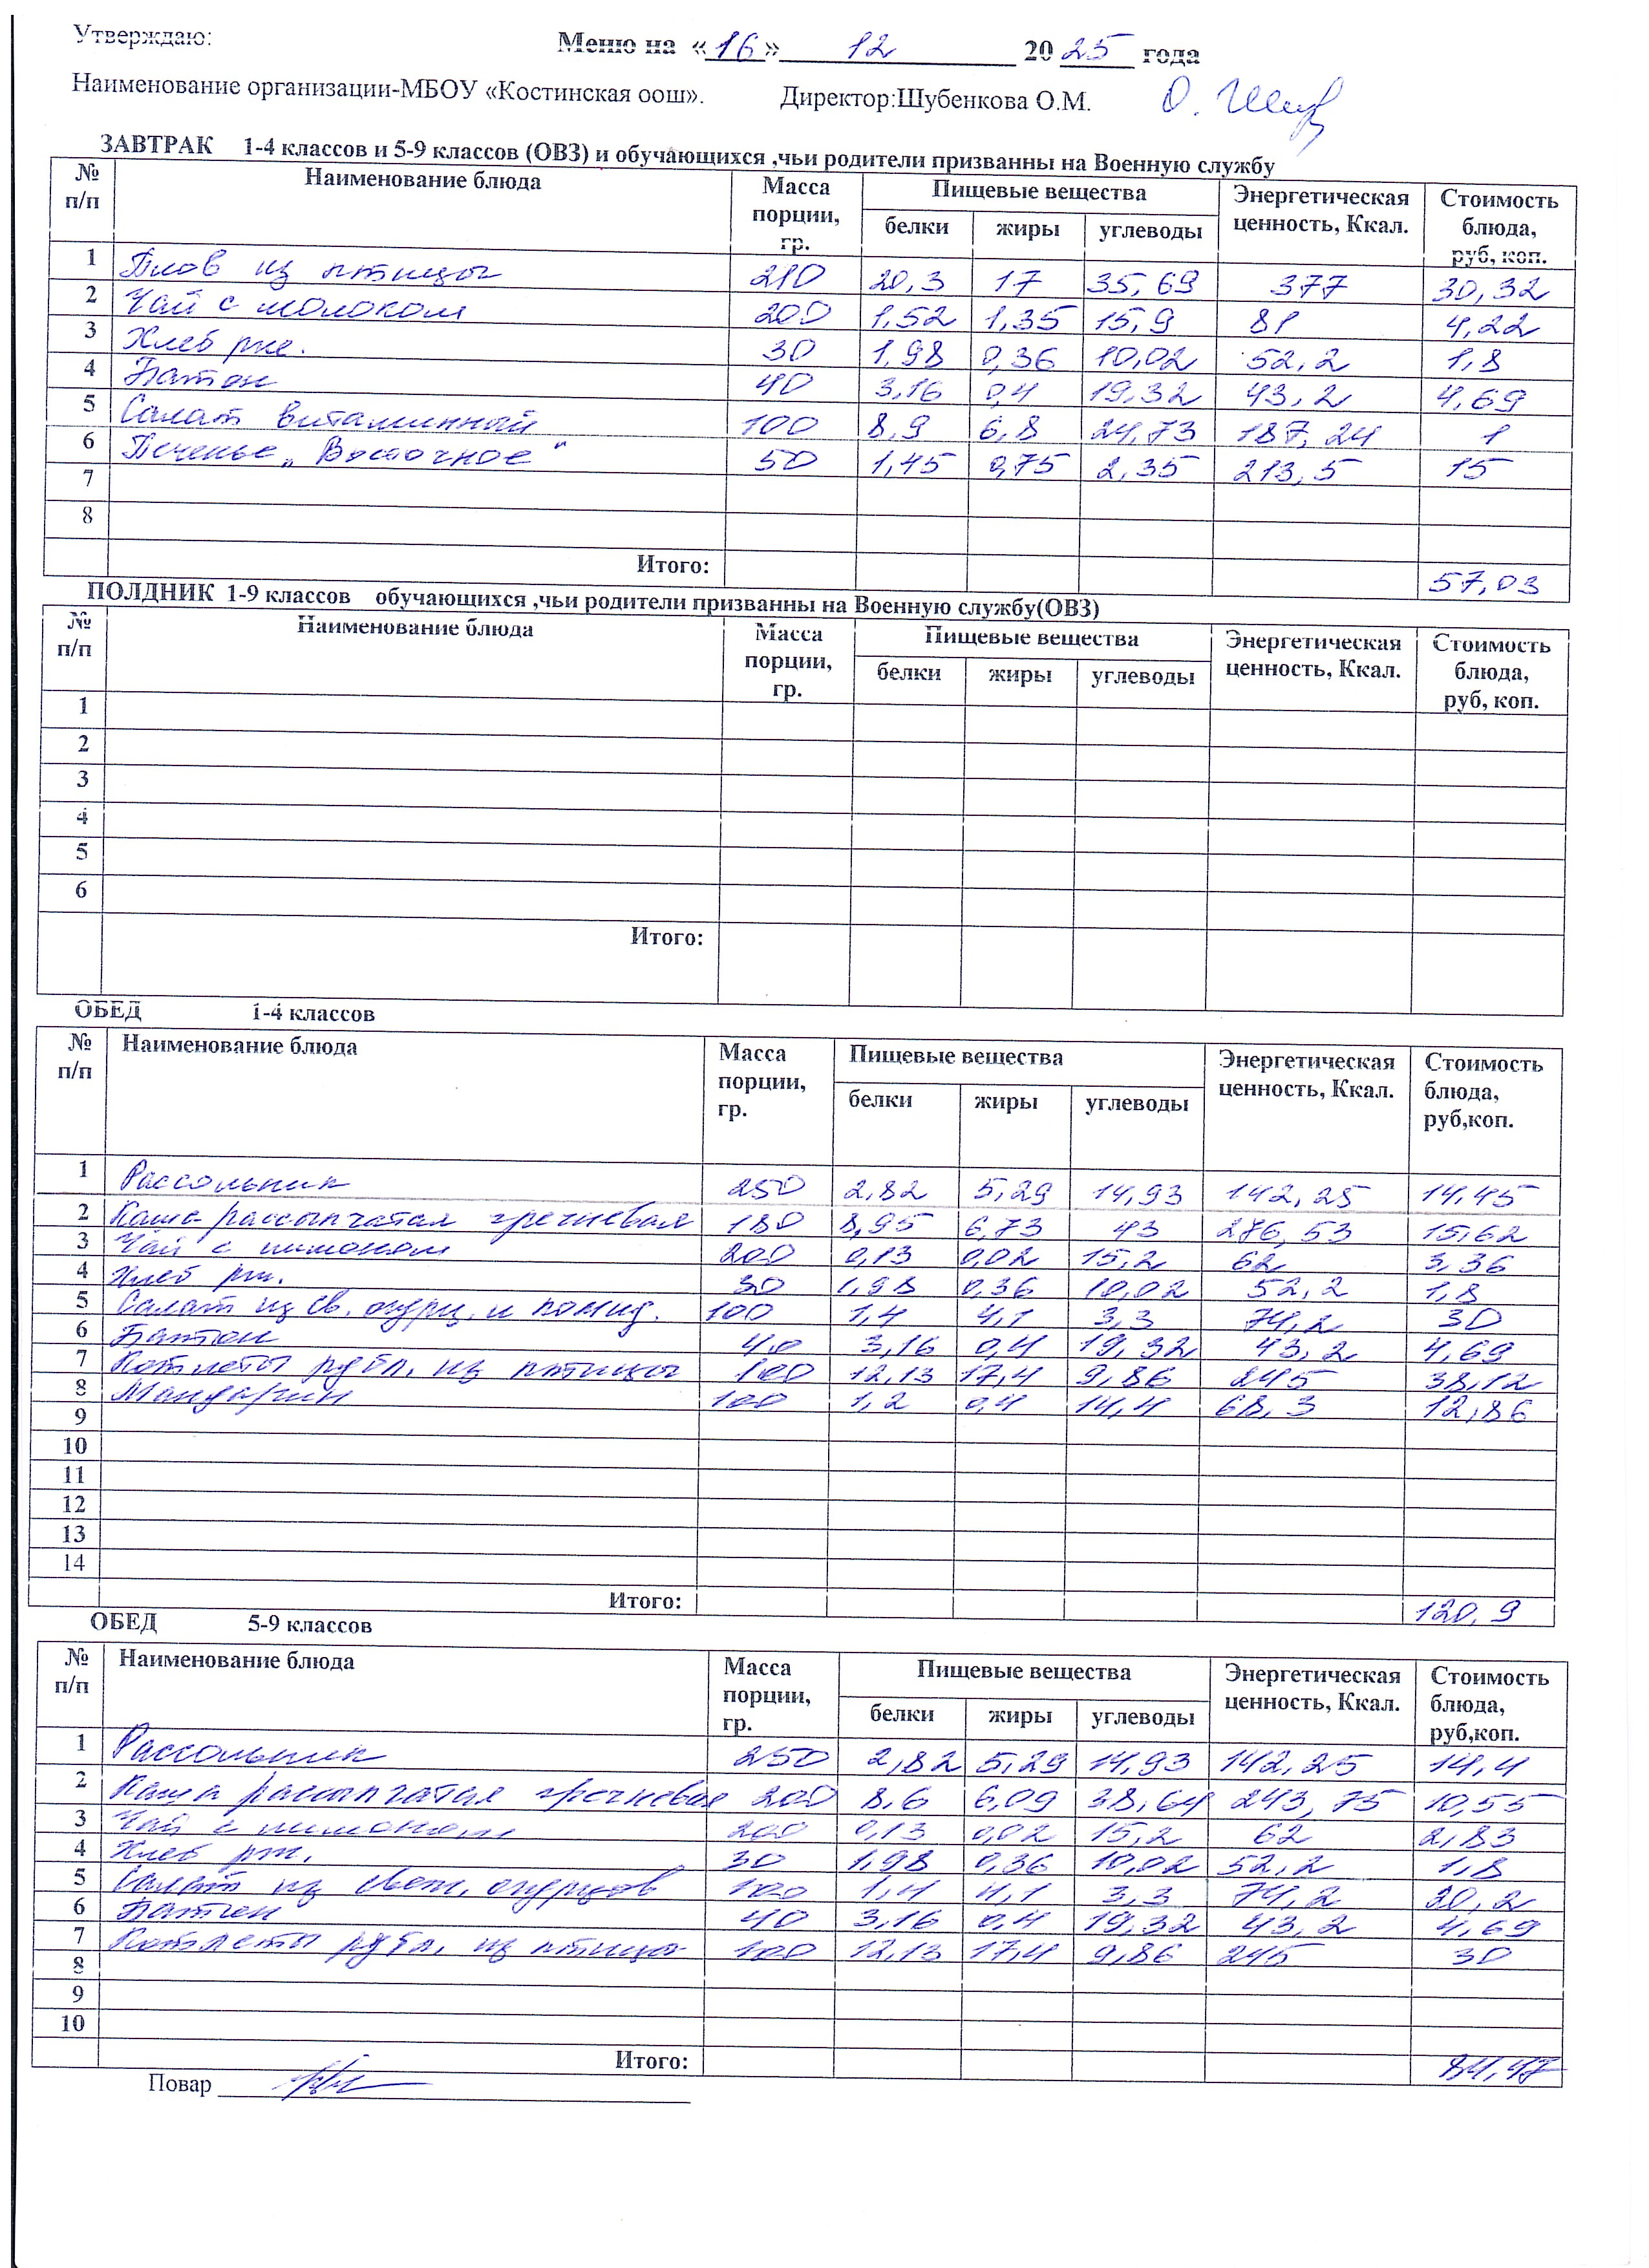 Утверждаю:
Меню на «16» 12 2025 года
Наименование организации-МБОУ «Костинская оош». Директор:Шубенкова О.М.
ЗАВТРАК 1-4 классов и 5-9 классов (ОВЗ) и обучающихся ,чьи родители призванны на Военную службу
№ п/п Наименование блюда Масса порции, гр. Пищевые вещества Энергетическая ценность, Ккал. Стоимость блюда, руб, коп.
белки жиры углеводы
1 Плов из птицы 210 20,3 17 35,69 377 30,32
2 Чай с молоком 200 1,52 1,35 15,9 81 4,22
3 Хлеб рже. 30 1,98 0,36 10,02 52,2 1,8
4 Батон 40 3,16 0,4 19,32 43,2 4,69
5 Салат витаминный 100 8,9 6,8 24,73 187,24 1
6 Печенье „Восточное" 50 1,45 0,75 2,35 213,5 15
7
8
Итого: 57,03
ПОЛДНИК 1-9 классов обучающихся ,чьи родители призванны на Военную службу(ОВЗ)
№ п/п Наименование блюда Масса порции, гр. Пищевые вещества Энергетическая ценность, Ккал. Стоимость блюда, руб, коп.
белки жиры углеводы
1
2
3
4
5
6
Итого:
ОБЕД 1-4 классов
№ п/п Наименование блюда Масса порции, гр. Пищевые вещества Энергетическая ценность, Ккал. Стоимость блюда, руб,коп.
белки жиры углеводы
1 Рассольник 250 2,82 5,29 14,93 142,25 14,45
2 Каша рассыпчатая гречневая 180 8,95 6,73 43 276,53 15,62
3 Чай с лимоном 200 0,13 0,02 15,2 62 3,36
4 Хлеб рж. 30 1,98 0,36 10,02 52,2 1,8
5 Салат из св. огурц. и помид. 100 1,4 4,1 3,3 74,2 30
6 Батон 40 3,16 0,4 19,32 43,2 4,69
7 Котлеты рубл. из птицы 100 12,13 17,4 9,86 245 38,12
8 Мандарин 100 1,2 0,4 14,4 68,3 12,86
9
10
11
12
13
14
Итого: 120,9
ОБЕД 5-9 классов
№ п/п Наименование блюда Масса порции, гр. Пищевые вещества Энергетическая ценность, Ккал. Стоимость блюда, руб,коп.
белки жиры углеводы
1 Рассольник 250 2,82 5,29 14,93 142,25 14,4
2 Каша рассыпчатая гречневая 200 8,6 6,09 38,64 243,75 10,55
3 Чай с лимоном 200 0,13 0,02 15,2 62 2,83
4 Хлеб рж. 30 1,98 0,36 10,02 52,2 1,8
5 Салат из свеж. огурцов 100 1,4 4,1 3,3 74,2 20,2
6 Батон 40 3,16 0,4 19,32 43,2 4,69
7 Котлеты рубл. из птицы 100 12,13 17,4 9,86 245 30
8
9
10
Итого: 84,47
Повар